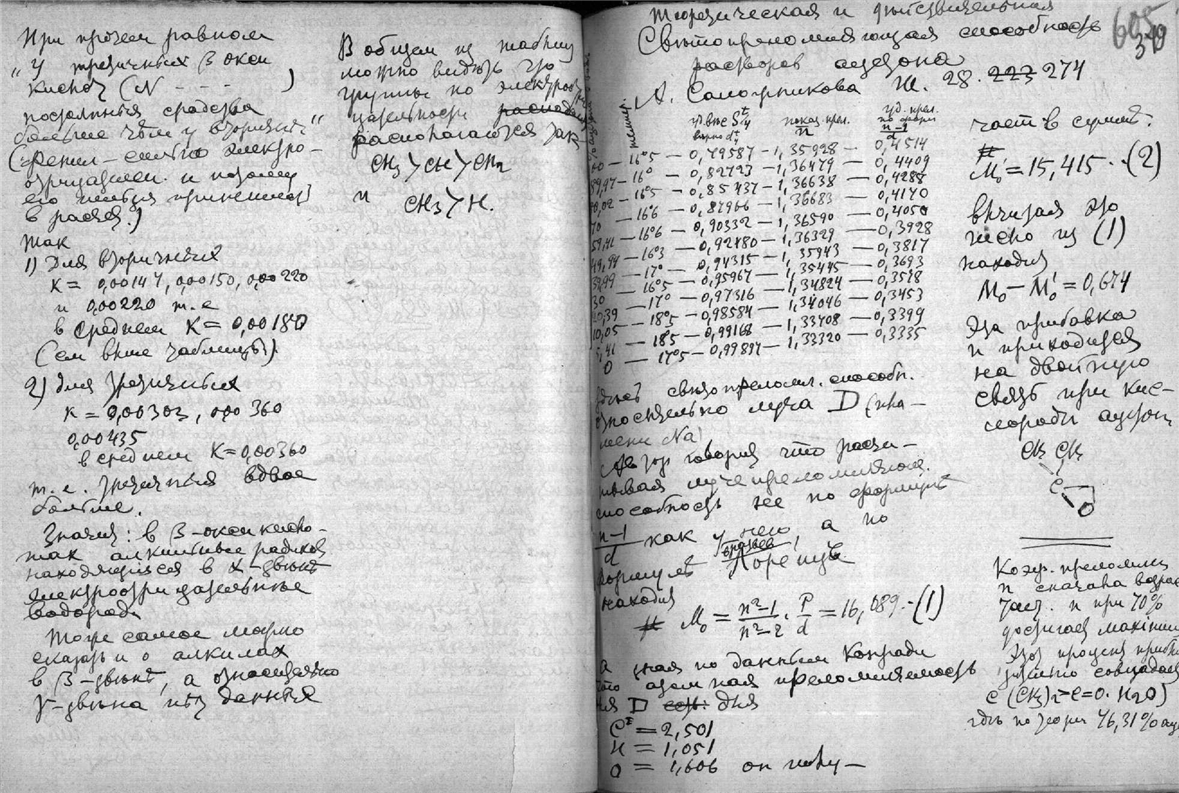 При прочем равном
"У третичных β окси
кислот (N - - - - )
постоянныя сродства
больше чем у вторичн."
и потому
его нельзя принимать
в расчет.)
Так
1) Для вторичных
K = 0,00147, 0,00150, 0,00220
и 0,00220 т.е
в среднем K = 0,00180
(См выше таблицы).
2) для третичных
K = 0,00303, 0,00360
0,00435
в среднем K = 0,00360
т.е. третичныя вдвое
больше.
Значит: в β-окси кисло-
тах алкильные радикал
находящиеся в α-звене
электроотрицательнее
водорода
Тоже самое можно
сказать и о алкилах
в β-звене, а относительно
γ-звена нет данных
В общем из таблиц
можно видеть что
группы по электроотри
цательности
располагаются так
CH3 > CH > CH2
и CH3 > H.
Теоретическая и действительная
Светопреломляющая способность
растворов ацетона
А. Ж. 28. 223 274
605
30
показ. прел.
n
уд. прел.
n-1
d
60 — 16°5 — 0,79587 — 1,35928 — 0,4514
89,97 — 16° — 0,82723 — 1,36479 — 0,4409
— 16°5 — 0,85437 — 1,36638 — 0,4288
70 — 16°6 — 0,87966 — 1,36683 — 0,4170
59,41 — 15°6 — 0,90332 — 1,36590 — 0,4050
49,94 — 16°3 — 0,92480 — 1,36329 — 0,3928
39,97 — 17° — 0,94315 — 1,35943 — 0,3817
30 — 16°5 — 0,95967 — 1,35445 — 0,3693
20,39 — 17° — 0,97316 — 1,34824 — 0,3578
10,05 — 18°5 — 0,98584 — 1,34046 — 0,3453
5,41 — 18 5 — 0,99168 — 1,33708 — 0,3399
0 — 17°5 — 0,99897 — 1,33320 — 0,3335
свето преломл. способн.
относительно луча D (пла-
мени Na)
Автор говорит что расчи-
тывая луче преломляющ.
способность не по формуле
n-1
d
как у него, а по
формуле Лоренца
находил
M₀ = n²-1 / n²-2 · P / d = 16,089 - (1)
а зная по данным Конради
что атомная преломляемость
для D для
C = 2,501
H = 1,051
O = 1,606 он полу-
чает в сумме:
M₀' = 15,415 - (2)
вычитая это
число из (1)
находил
M₀ - M₀' = 0,674
Эта прибавка
и приходится
на двойную
связь при кис-
лороде ацетон
CH3 CH3
C
O
Коэф. преломлен
n сначала возрас
тает и при 70%
достигает maximum
Этот процент прибли
зительно совпадает
с (CH3)2>C=O·H2O)
где по теори 76,31% ацет